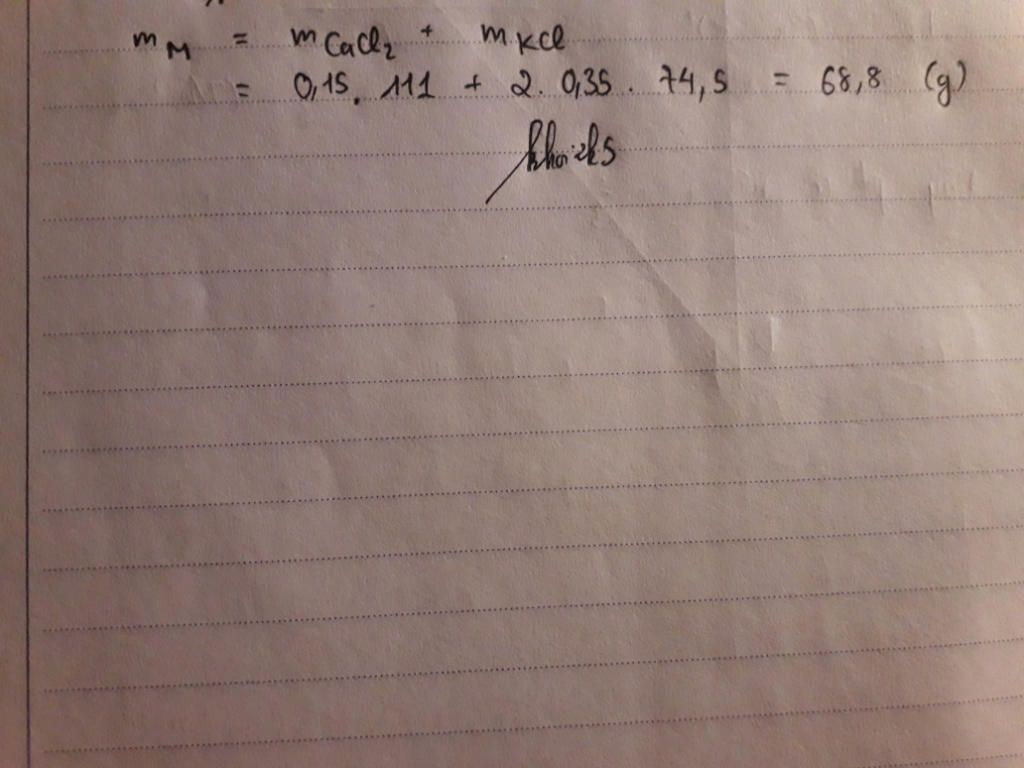 m_M = m_CaCl₂ + m_KCl
= 0,15 . 111 + 2 . 0,35 . 74,5 = 68,8 (g)